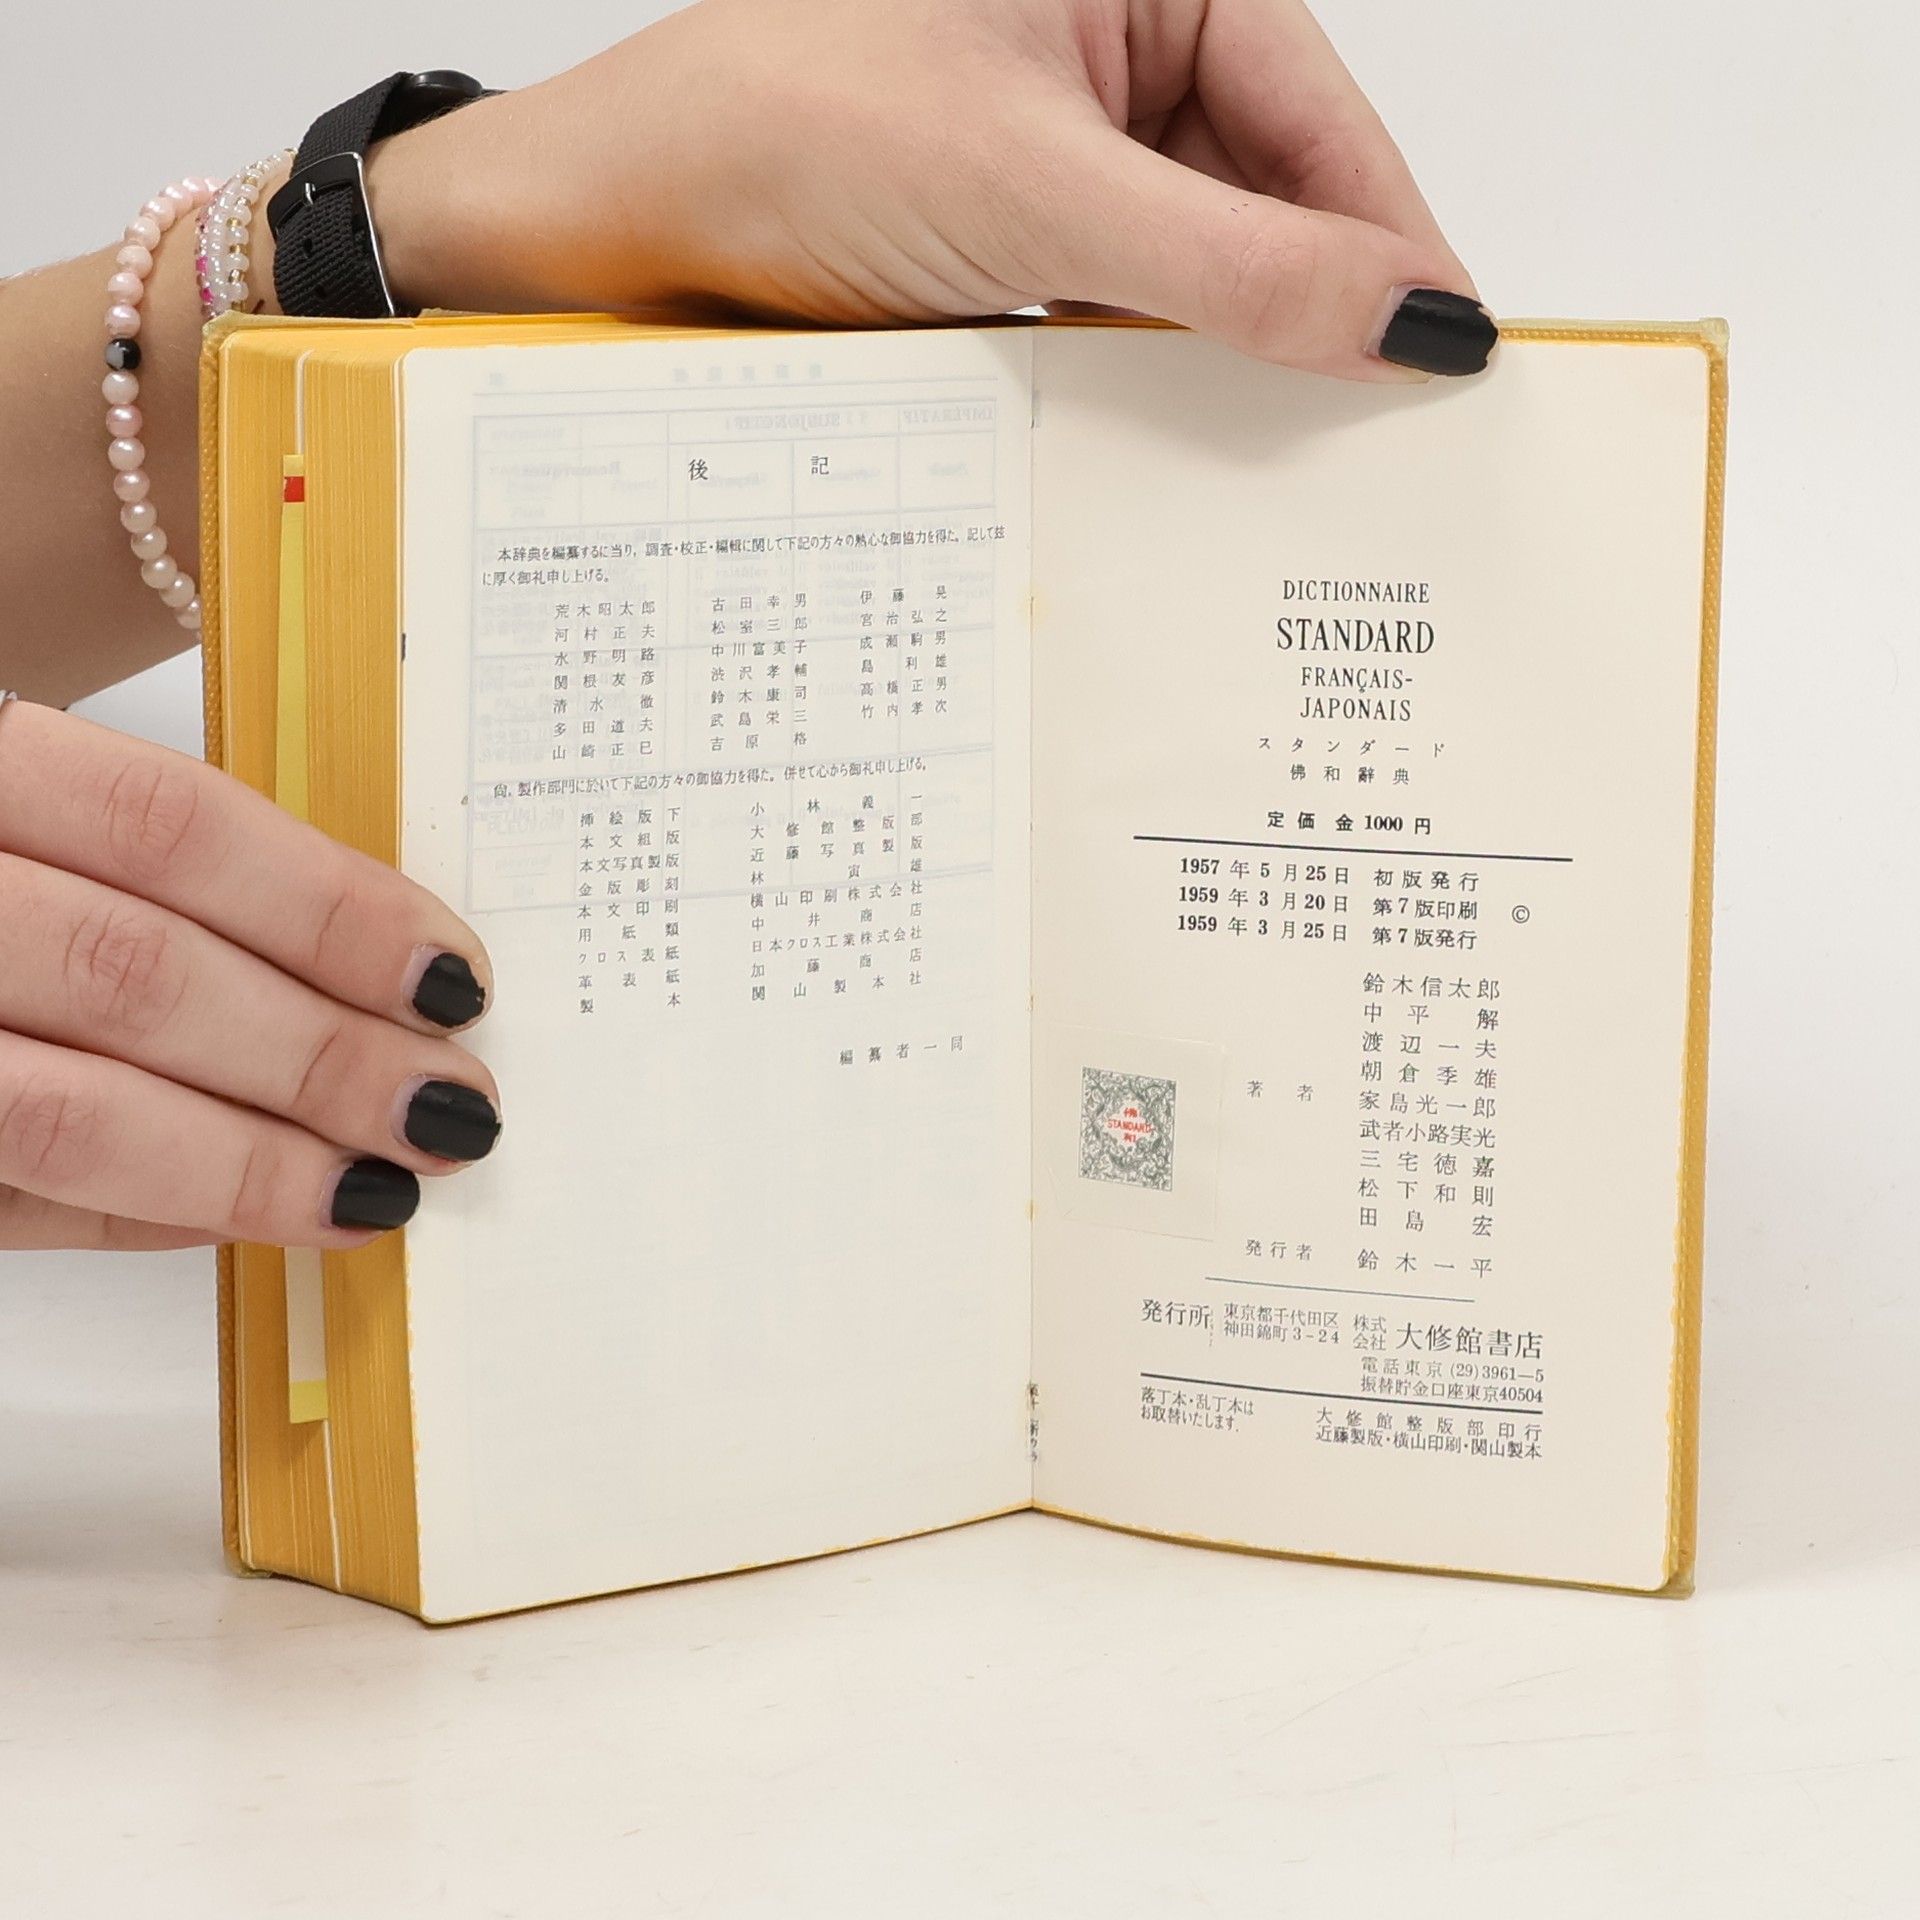 後記
本辞典を編纂するに当り，調査・校正・編輯に関して下記の方々の熱心な御協力を得た。記して玆
に厚く御礼申し上げる。
荒木昭太郎 古田幸男 伊藤晃
河村正夫 松室三郎 宮治弘之
水野明路 中川富美子 成瀬駒男
関根友彦 渋沢孝輔 島利雄
清水徹 鈴木康司 高橋正男
多田道夫 武島栄三 竹内孝次
山崎正巳 吉原格
尙，製作部門に於いて下記の方々の御協力を得た。併せて心から御礼申し上げる。
挿絵版下 小林義一
本文組版 大修館整版部
本文写真製版 近藤写真製版
金版彫刻 林寅雄
本文印刷 横山印刷株式会社
用紙類 中井商店
クロス表紙 日本クロス工業株式会社
革表紙 加藤商店
製本 関山製本社
編纂者一同
DICTIONNAIRE
STANDARD
FRANÇAIS-
JAPONAIS
スタンダード
佛和辭典
定価 金 1000 円
1957 年 5 月 25 日 初版発行
1959 年 3 月 20 日 第7版印刷 ©
1959 年 3 月 25 日 第7版発行
鈴木信太郎
中平解
渡辺一夫
朝倉季雄
著者 家島光一郎
武者小路実光
三宅徳嘉
松下和則
田島宏
発行者 鈴木一平
佛
STANDARD
和
発行所 東京都千代田区神田錦町3-24 株式会社 大修館書店
電話東京(29)3961—5
振替貯金口座東京40504
落丁本・乱丁本は
お取替いたします．
大修館整版部印行
近藤製版・横山印刷・関山製本